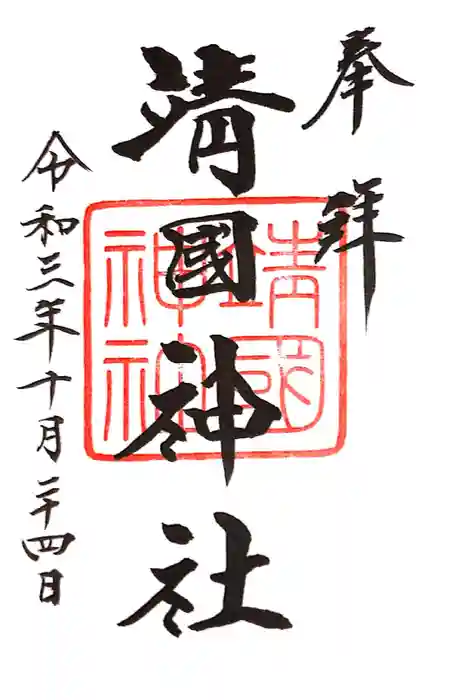 奉拝
靖國神社
令和三年十月二十四日
靖國
神社